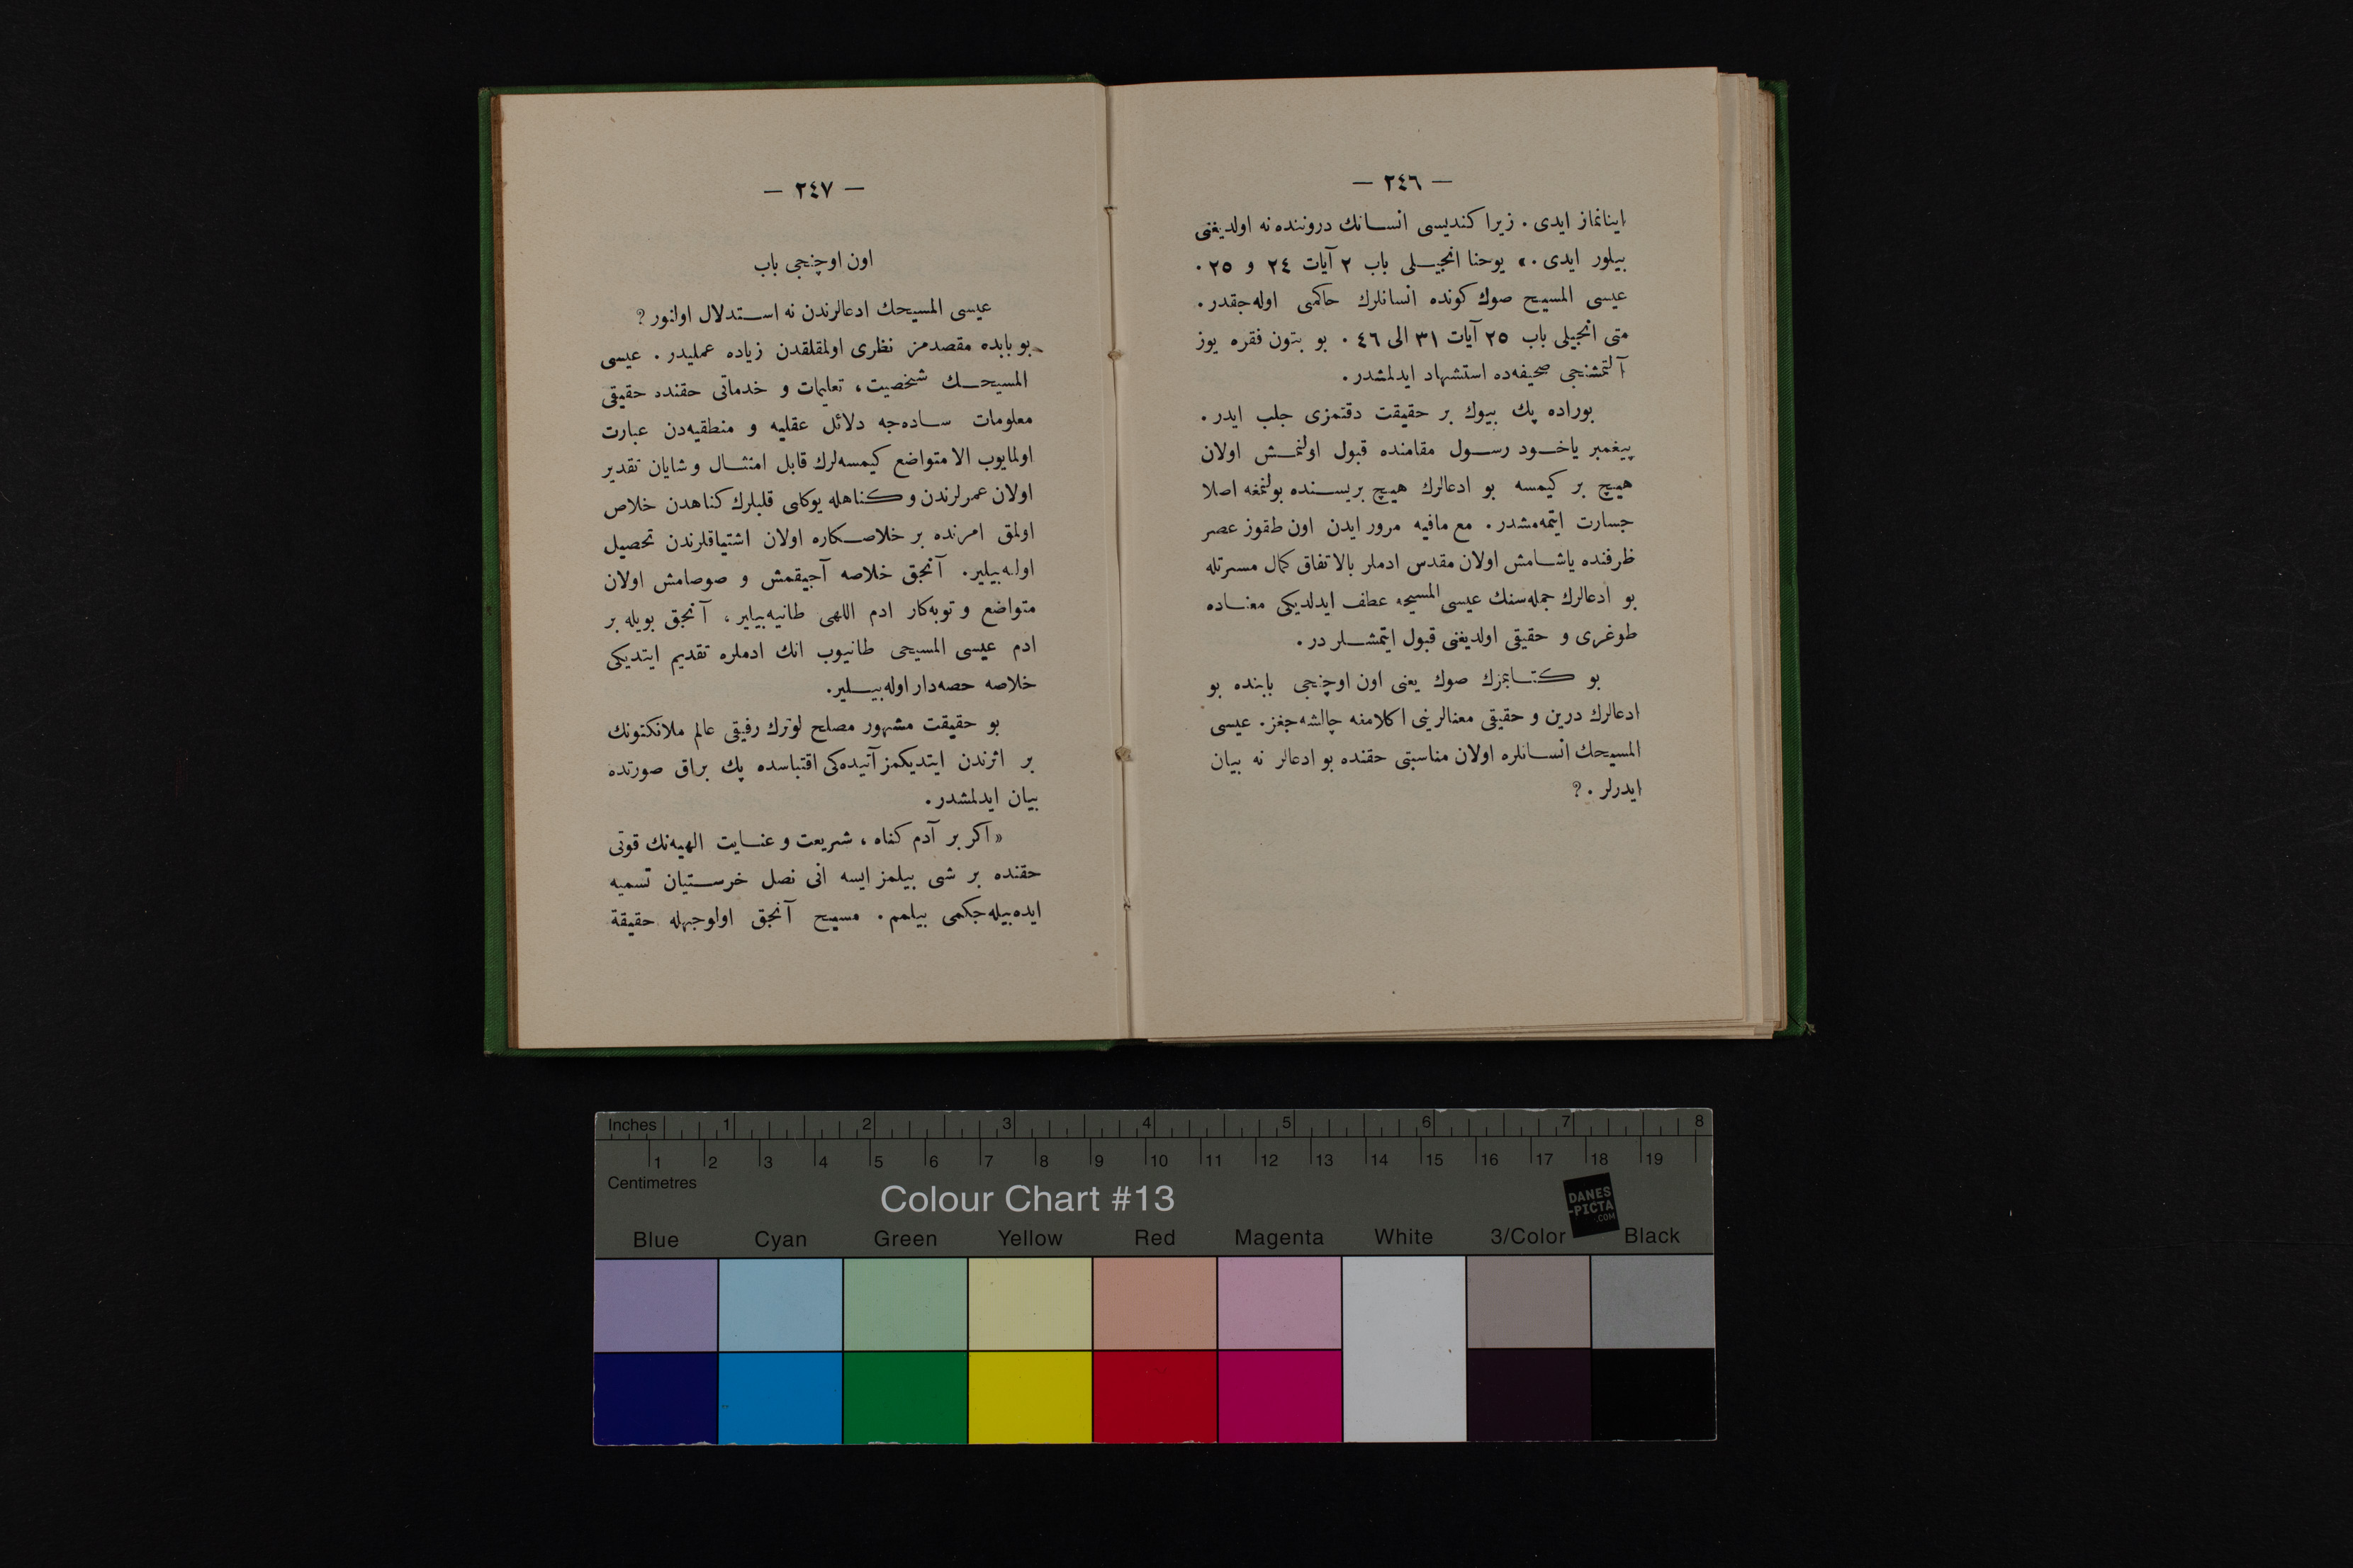 — ٢٤٦ —
اینانماز ایدی . زیرا كندیسی انسانك دروننده نه اولدیغنی
بیلور ایدی .» یوحنا انجیلی باب ٢ آیات ٢٤ و ٢٥ .
عیسی المسیح صوك كونده انسانلرك حاكمی اوله‌جقدر .
متی انجیلی باب ٢٥ آیات ٣١ الی ٤٦ . بو بتون فقره یوز
آلتمشنجی صحیفه‌ده استشهاد ایدلمشدر .
بوراده پك بیوك بر حقیقت دقتمزی جلب ایدر .
پیغمبر یاخود رسول مقامنده قبول اولنمش اولان
هیچ بر كیمسه بو ادعالرك هیچ بریسنده بولنمغه اصلا
جسارت ایتمه‌مشدر . مع مافیه مرور ایدن اون طقوز عصر
ظرفنده یاشامش اولان مقدس ادملر بالاتفاق كمال مسرتله
بو ادعالرك جمله‌سنك عیسی المسیحه عطف ایدلدیكی معناده
طوغری و حقیقی اولدیغنی قبول ایتمشلر در .
بو كتابمزك صوك یعنی اون اوچنجی بابنده بو
ادعالرك درین و حقیقی معنالرینی اكلامغه چالشه‌جغز . عیسی
المسیحك انسانلره اولان مناسبتی حقنده بو ادعالر نه بیان
ایدرلر . ؟
— ٢٤٧ —
اون اوچنجی باب
عیسی المسیحك ادعالرندن نه استدلال اولنور ؟
بو بابده مقصدمز نظری اولمقلقدن زیاده عملیدر . عیسی
المسیحك شخصیت ، تعلیمات و خدماتی حقنده حقیقی
معلومات ساده‌جه دلائل عقلیه و منطقیه‌دن عبارت
اولمایوب الا متواضع كیمسه‌لرك قابل امتثال و شایان تقدیر
اولان عمرلرندن و كناهله یوكلی قلبلرك كناهدن خلاص
اولمق امرنده بر خلاصكاره اولان اشتیاقلرندن تحصیل
اوله‌بیلیر . آنجق خلاصه آجیقمش و صوصامش اولان
متواضع و توبه‌كار ادم اللهی طانیه‌بیلیر ، آنجق بویله بر
ادم عیسی المسیحی طانیوب انك ادملره تقدیم ایتدیكی
خلاصه حصه‌دار اوله‌بیلیر .
بو حقیقت مشهور مصلح لوترك رفیقی عالم ملانكتونك
بر اثرندن ایتدیكمز آتیده‌كی اقتباسده پك براق صورتده
بیان ایدلمشدر .
«اكر بر آدم كناه ، شریعت و عنایت الهیه‌نك قوتی
حقنده بر شی بیلمز ایسه انی نصل خرستیان تسمیه
ایده‌بیله‌جكمی بیلمم . مسیح آنجق اولوجهله حقیقة
Inches 1 2 3 4 5 6 7 8
1 2 3 4 5 6 7 8 9 10 11 12 13 14 15 16 17 18 19
Centimetres
Colour Chart #13
DANES
-PICTA
.COM
Blue Cyan Green Yellow Red Magenta White 3/Color Black